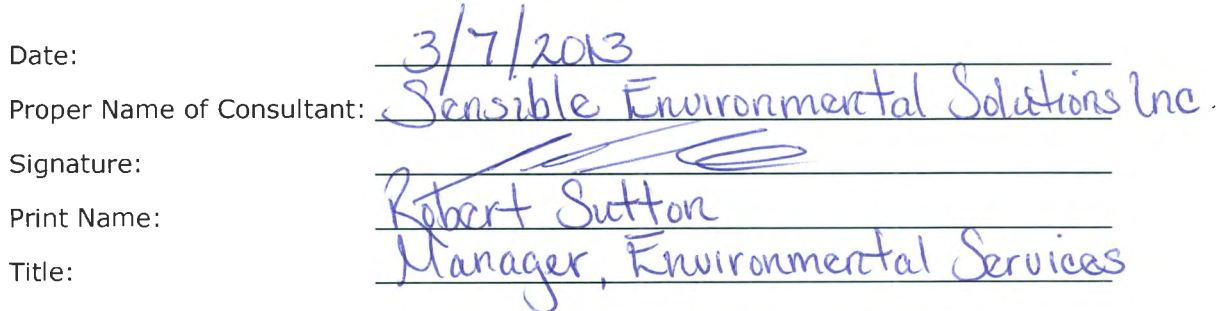 Date: 3/7/2013
Proper Name of Consultant: Sensible Environmental Solutions Inc.
Signature:
Print Name: Robert Sutton
Title: Manager, Environmental Services